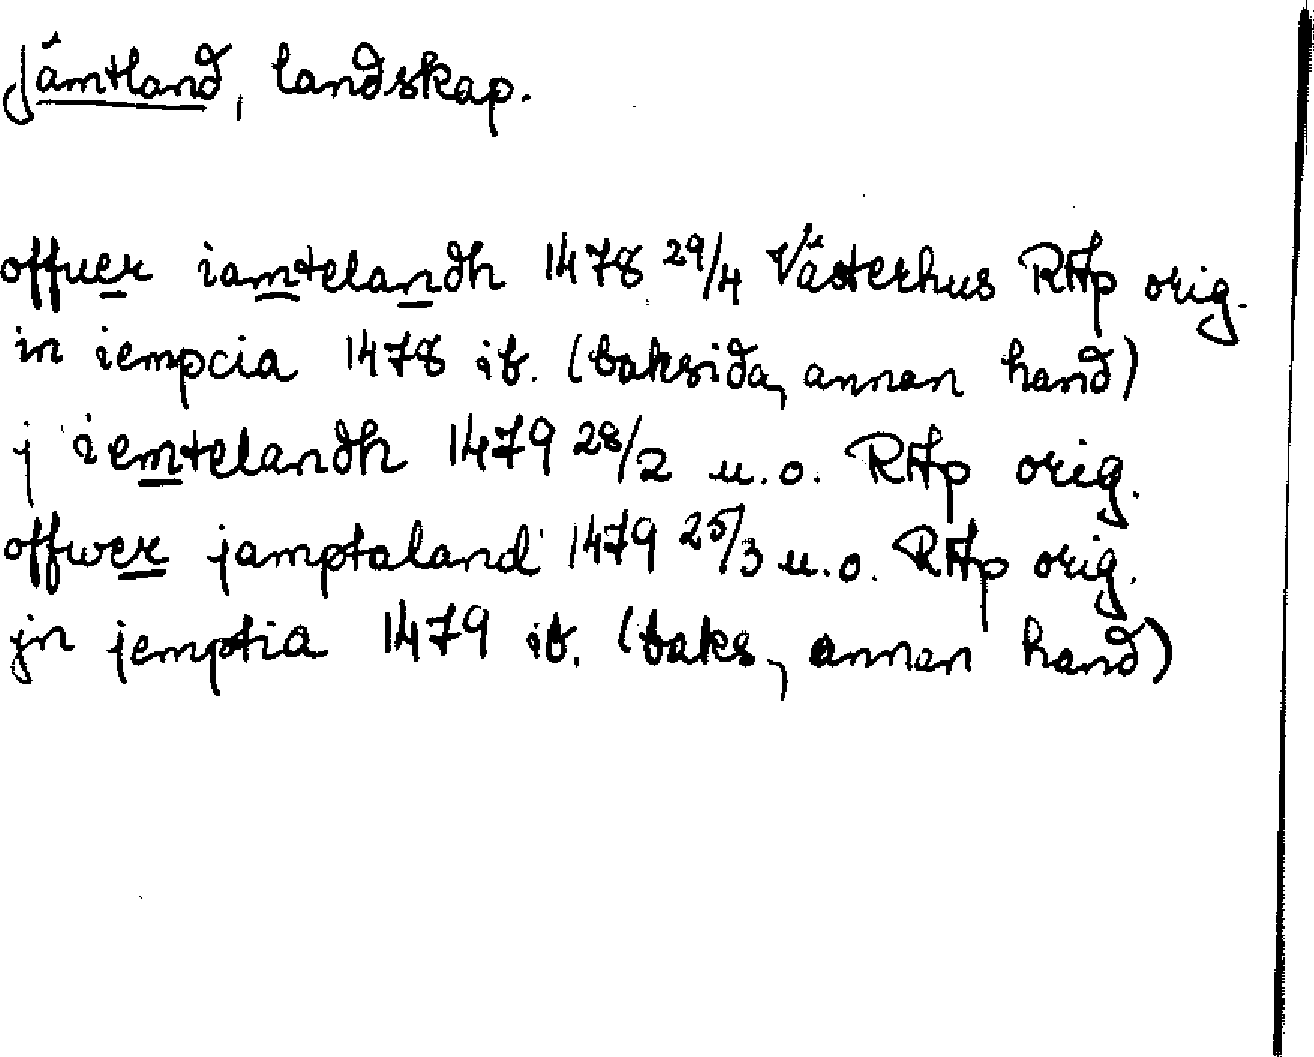 Jämtland, landskap.
offuer iamtelandh 1478 29/4 Västerhus RAp orig.
in iempcia 1478 ib. (baksida, annan hand)
j iemtelandh 1479 28/2 u.o. RAp orig.
offwer jamptaland 1479 25/3 u.o. RAp orig.
jn jemptia 1479 ib. (baks, annan hand)